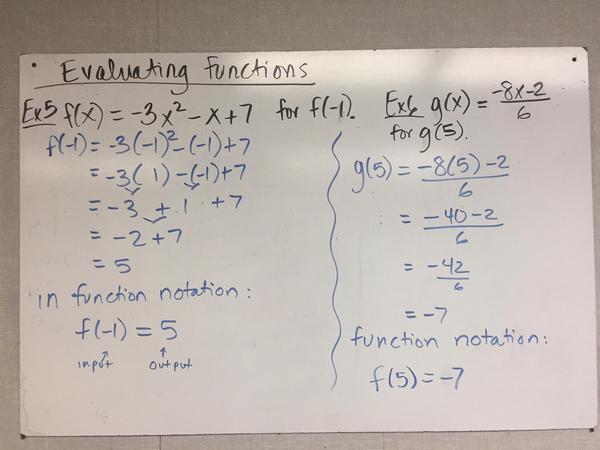 Evaluating Functions
Ex5 f(x) = -3x² - x + 7 for f(-1).
f(-1) = -3(-1)² - (-1) + 7
= -3(1) - (-1) + 7
= -3 + 1 + 7
= -2 + 7
= 5
in function notation:
f(-1) = 5
input output
Ex6 g(x) = -8x-2
6
for g(5).
g(5) = -8(5) - 2
6
= -40 - 2
6
= -42
6
= -7
function notation:
f(5) = -7